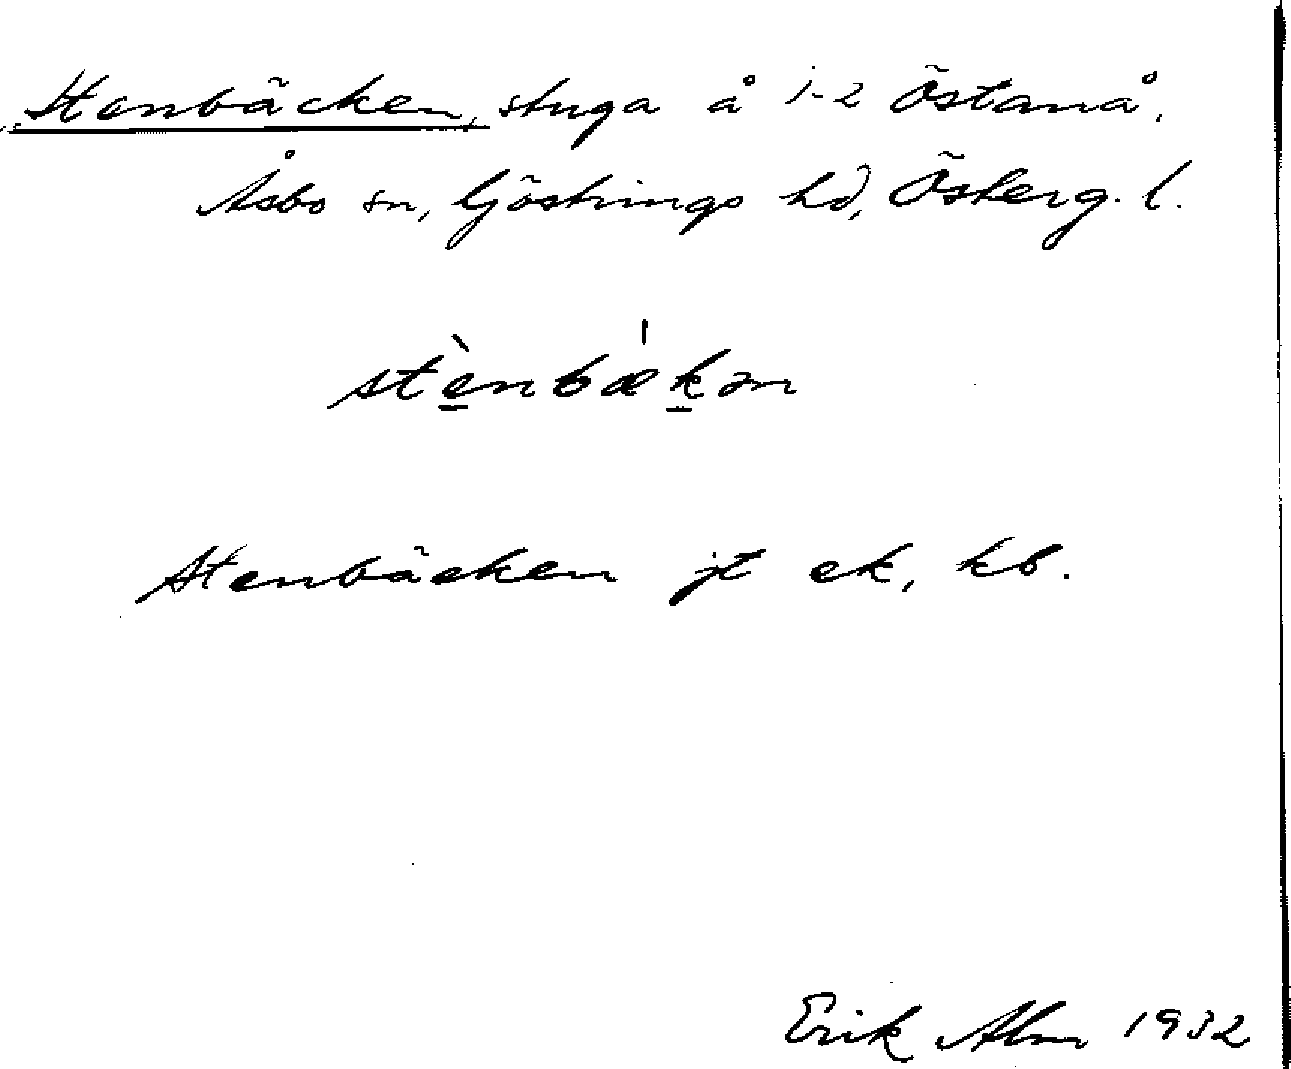 Stenbäcken, stuga å 1-2 Östanå,
Åsbo sn, Göstrings hd, Österg. l.
stènbæ̍kən
Stenbäcken jt ek, kb.
Erik Alm 1932